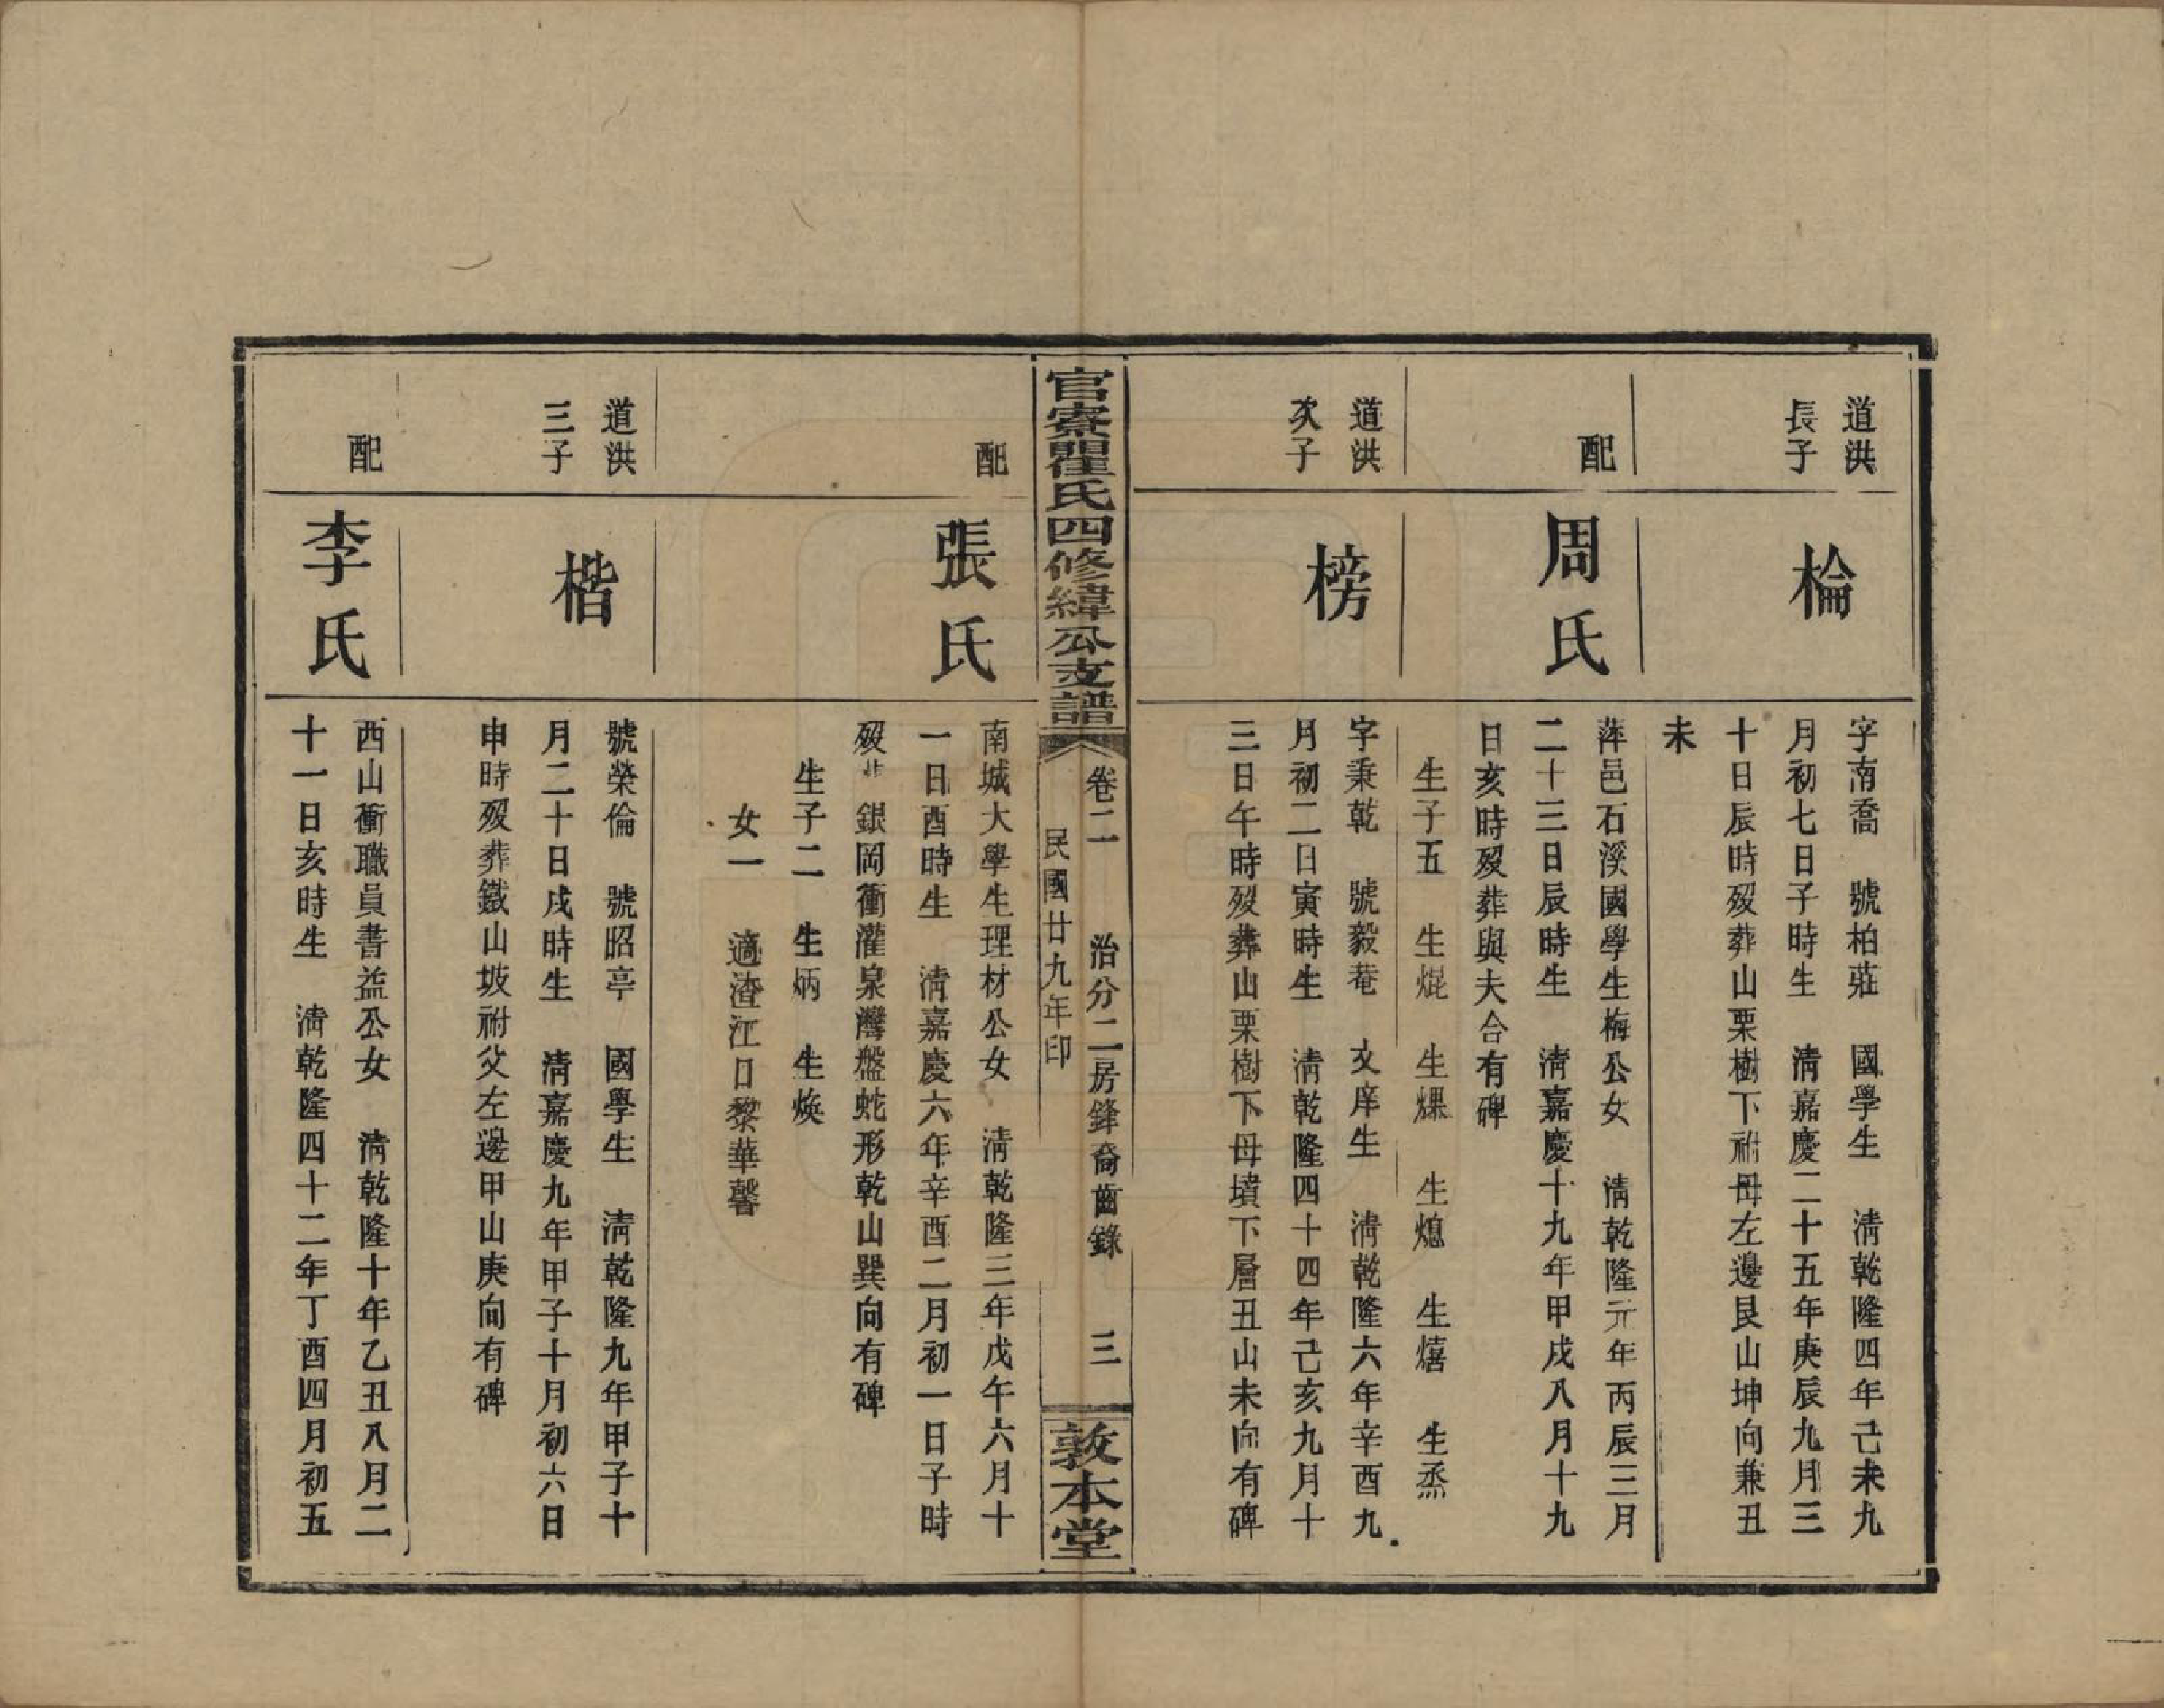 道洪
長子
棆
字南喬　號柏莊　國學生　淸乾隆四年己未九
月初七日子時生　淸嘉慶二十五年庚辰九月三
十日辰時歿葬山栗樹下祔母左邊艮山坤向兼丑
未
配
周氏
萍邑石溪國學生梅公女　淸乾隆元年丙辰三月
二十三日辰時生　淸嘉慶十九年甲戌八月十九
日亥時歿葬與夫合有碑
生子五　生焜　生煤　生熄　生熺　生烝
道洪
次子
榜
字秉乾　號毅菴　文庠生　淸乾隆六年辛酉九
月初二日寅時生　淸乾隆四十四年己亥九月十
三日午時歿葬山栗樹下母墳下層丑山未向有碑
官寮瞿氏四修緯公支譜
卷二　治分二房鋒裔齒錄　三
民國廿九年印
敦本堂
配
張氏
南城大學生理材公女　淸乾隆三年戊午六月十
一日酉時生　淸嘉慶六年辛酉二月初一日子時
歿葬銀岡衝灌泉灣盤蛇形乾山巽向有碑
生子二　生炳　生煥
女一　適渣江日黎華馨
道洪
三子
楷
號榮倫　號昭亭　國學生　淸乾隆九年甲子十
月二十日戌時生　淸嘉慶九年甲子十月初六日
申時歿葬鐵山坡祔父左邊甲山庚向有碑
配
李氏
西山衝職員書益公女　淸乾隆十年乙丑八月二
十一日亥時生　淸乾隆四十二年丁酉四月初五